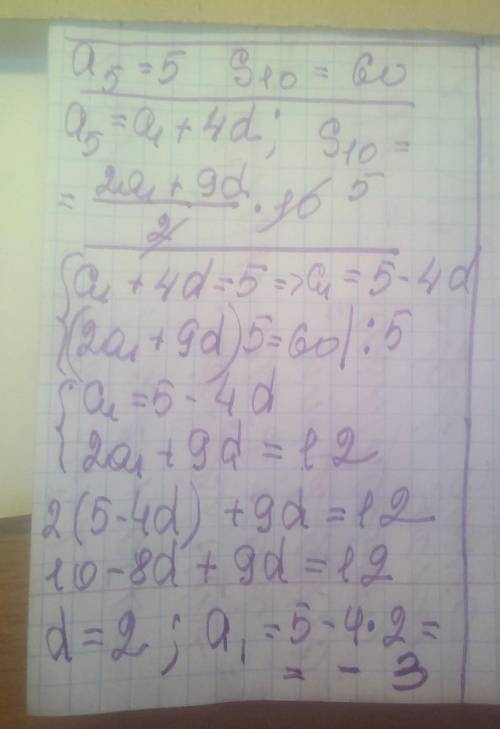 a₅ = 5 S₁₀ = 60
a₅ = a₁ + 4d; S₁₀ =
= (2a₁ + 9d)/2 · 10 5
{ a₁ + 4d = 5 => a₁ = 5 - 4d
(2a₁ + 9d) 5 = 60 | : 5
{ a₁ = 5 - 4d
2a₁ + 9d = 12
2(5 - 4d) + 9d = 12
10 - 8d + 9d = 12
d = 2; a₁ = 5 - 4 · 2 =
= - 3